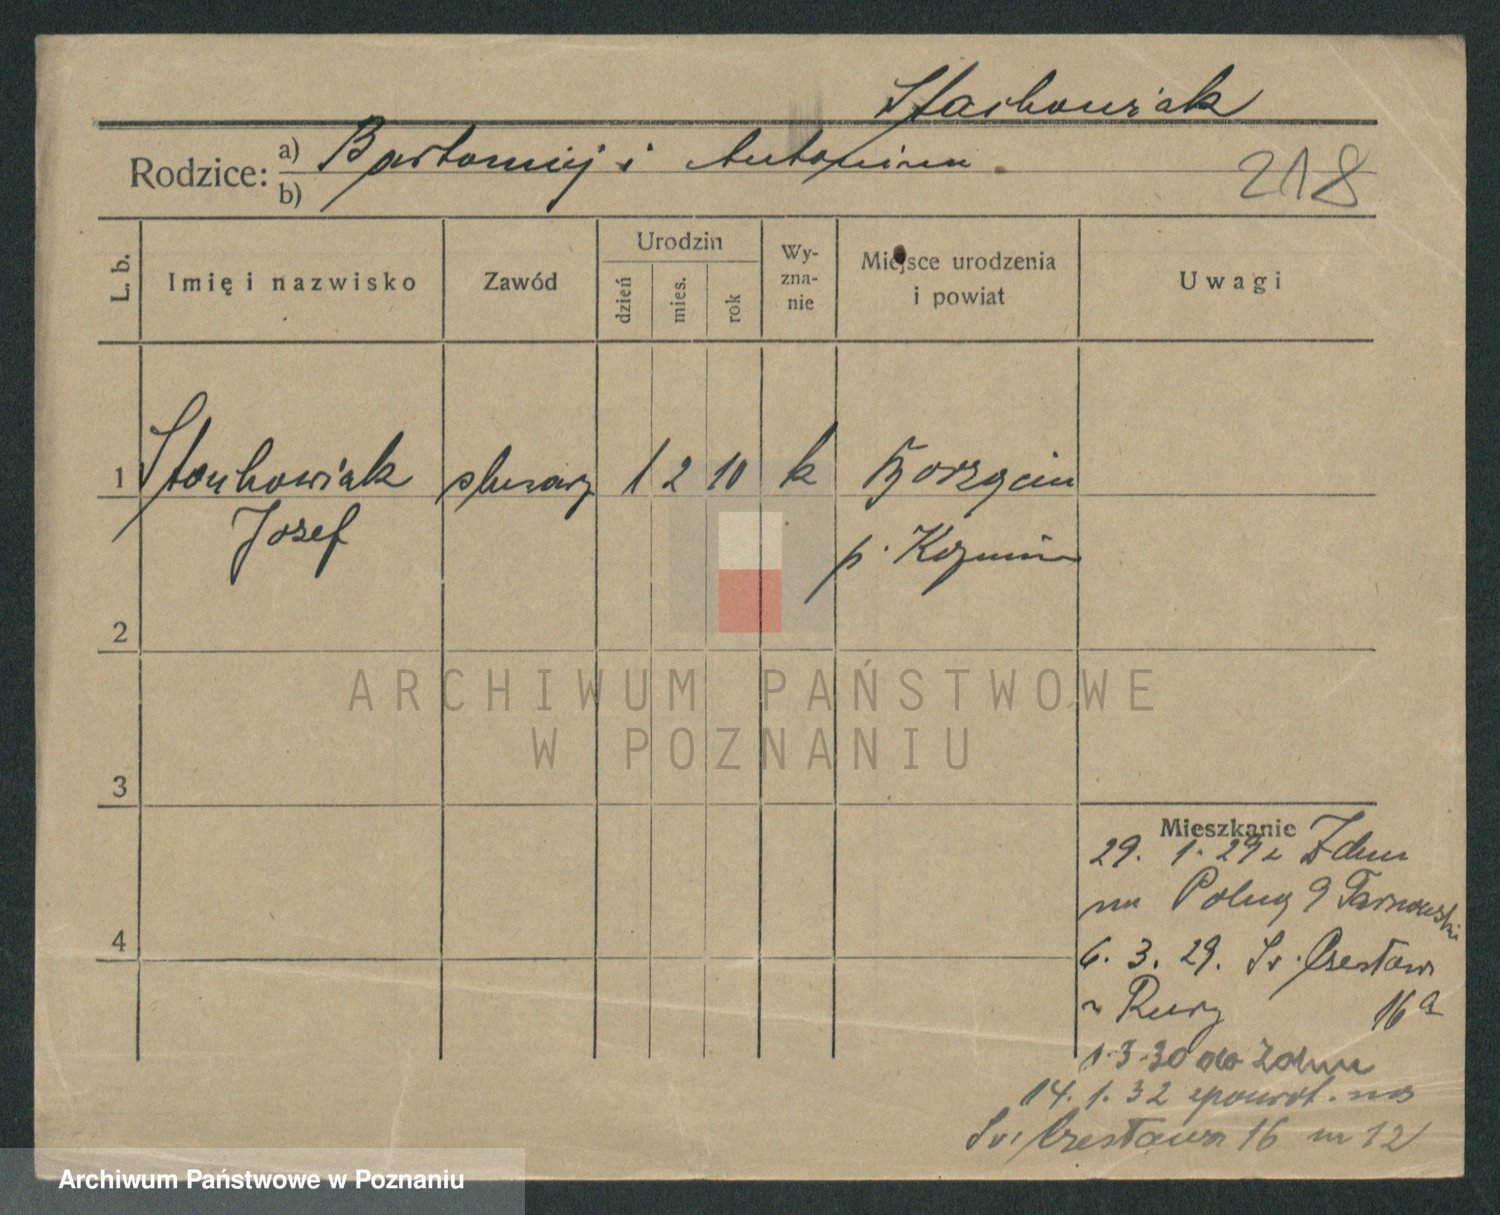 Stachowiak
Rodzice: a) Bartomiej i Antonina
b)
218
L. b.
Imię i nazwisko
Zawód
Urodzin
dzień
mies.
rok
Wy-
zna-
nie
Miejsce urodzenia
i powiat
Uwagi
1 Stachowiak ślusarz 1 2 10 k Borzęcin
Józef p. Koźmin
2
3
4
Mieszkanie
29. 1. 29 z Zdun
na 9 Tarnowski
6. 3. 29. Św. Czesława
16a
1.3.30 do Zdun
14. 1. 32 spowrot. na
Św. Czesława 16 m 12
ARCHIWUM PAŃSTWOWE
W POZNANIU
Archiwum Państwowe w Poznaniu